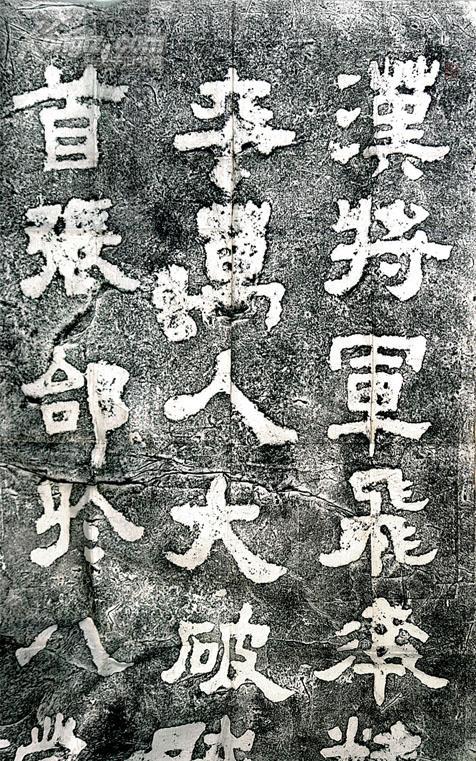 漢將軍飛率
卒萬人大破
首張郃於八